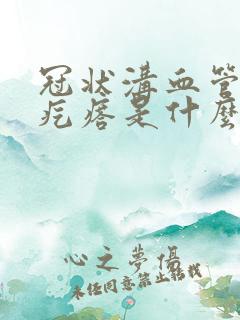 冠状溝血管
疙瘩是什麼
心之夢偶
未经同意禁止转载